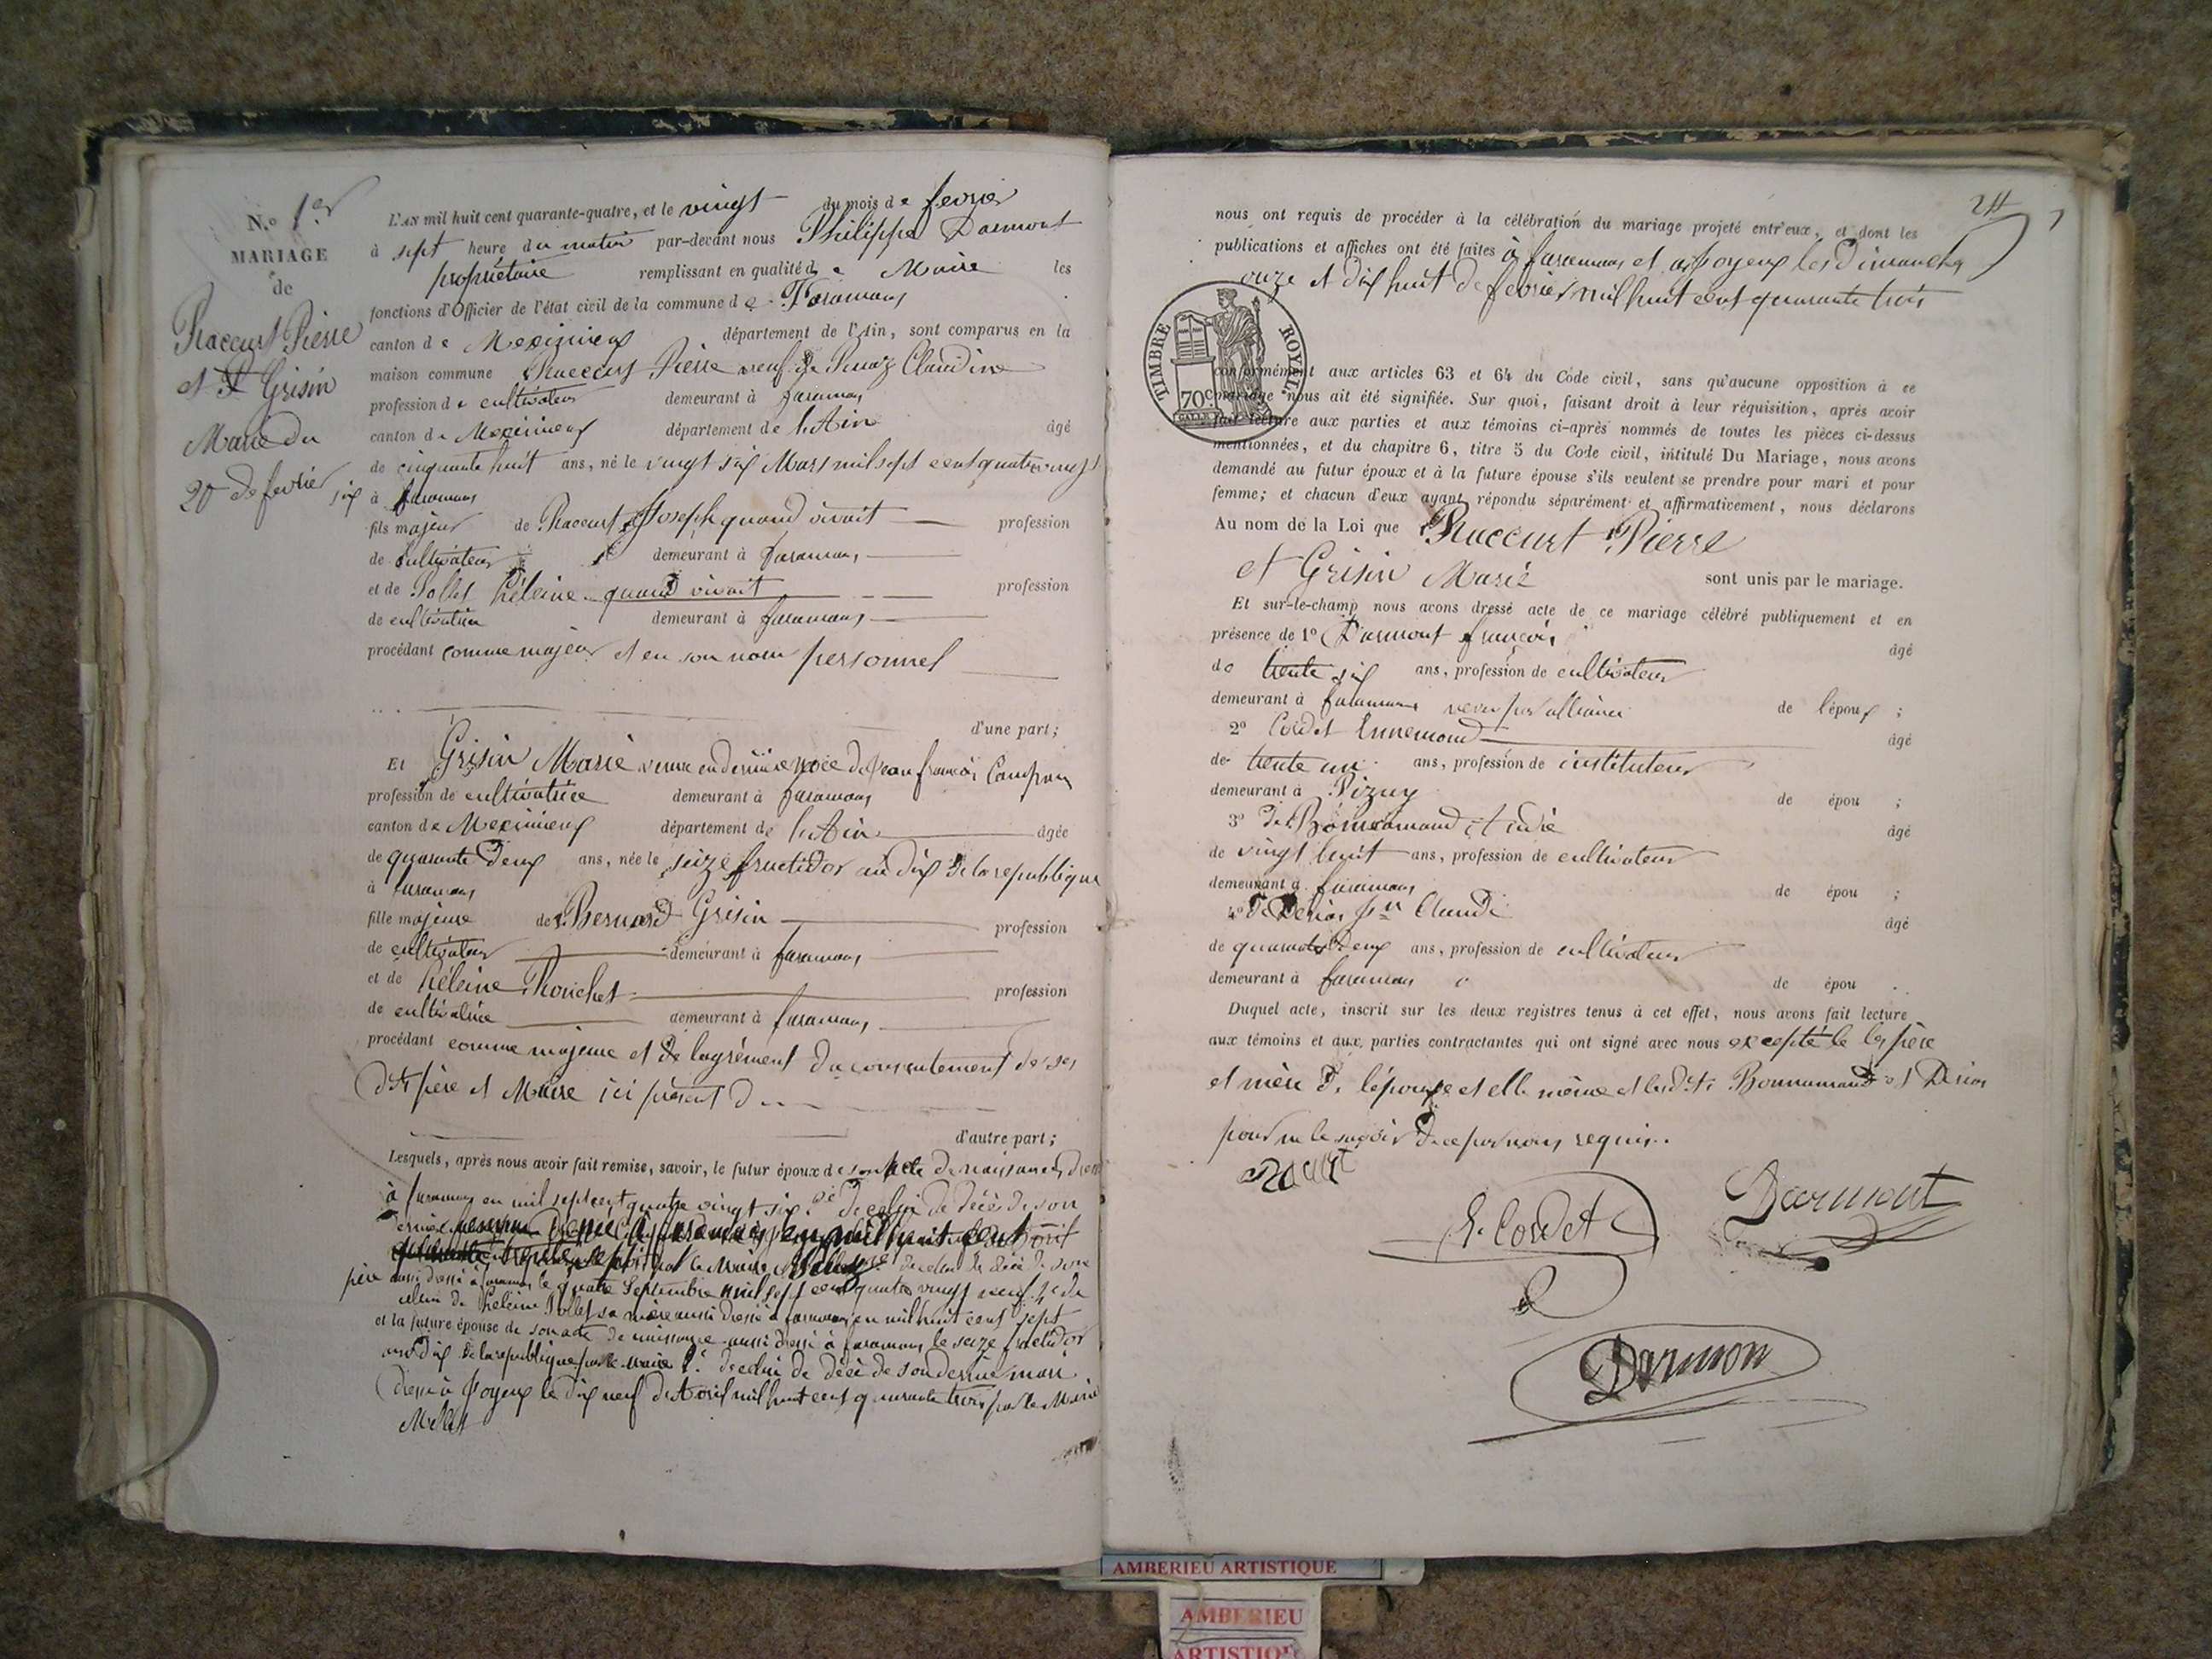 N.o 1er
MARIAGE
de
Raccurt Pierre
et Grisin
Marie du
20 de fevrier
L'AN mil huit cent quarante-quatre, et le vingt du mois de fevrier
à sept heure du matin par-devant nous Philippe Darmont
propriétaire remplissant en qualité de Maire les
fonctions d'Officier de l'état civil de la commune de Faramans
canton de Meximieux département de l'Ain, sont comparus en la
maison commune Raccurt Pierre veuf de Claudine
profession de cultivateur demeurant à faramans
canton de Meximieux département de l'Ain âgé
de cinquante huit ans, né le vingt six Mars mil sept cent quatre vingt
six à faramans
fils majeur de Raccurt Joseph quand vivait profession
de cultivateur demeurant à faramans
et de Pollet héleine quand vivait profession
de cultivatrice demeurant à faramans
procédant comme majeur et en son nom personnel
d'une part;
Et Grisin Marie veuve en dernière noce de Jean françois
profession de cultivatrice demeurant à faramans
canton de Meximieux département de l'Ain âgée
de quarante deux ans, née le seize fructidor an dix de la republique
à faramans
fille majeure de Bernard Grisin profession
de cultivateur demeurant à faramans
et de héleine Ronchet profession
de cultivatrice demeurant à faramans
procédant comme majeure et de lagrément du consentement de ses
dits père et Mère ici présent
d'autre part;
Lesquels, après nous avoir fait remise, savoir, le futur époux de son Acte de naissance
à faramans en mil sept cent quatre vingt six 2e de celui de décè de son
faramans en mil huit cent
trente sept par le Maire de celui de décè de son
père aussi dressé à faramans le quatre Septembre mil sept cent quatre vingt neuf
celui de héleine Pollet sa mère aussi dressé à faramans en mil huit cent sept
et la future épouse de son acte de naissance aussi dressé à faramans le seize fructidor
an dix de la republique par le maire 2e de celui de décè de son dernier mari
dressé à Joyeux le dix neuf d'Avril mil huit cent quarante trois par le Maire
Millet
24
nous ont requis de procéder à la célébration du mariage projeté entr'eux, et dont les
publications et affiches ont été faites à faramans et à Joyeux les Dimanches
onze et dix huit de fevrier mil huit cent quarante trois
TIMBRE ROYAL.
70 c.
conformément aux articles 63 et 64 du Code civil, sans qu'aucune opposition à ce
mariage nous ait été signifiée. Sur quoi, faisant droit à leur réquisition, après avoir
fait lecture aux parties et aux témoins ci-après nommés de toutes les pièces ci-dessus
mentionnées, et du chapitre 6, titre 5 du Code civil, intitulé Du Mariage, nous avons
demandé au futur époux et à la future épouse s'ils veulent se prendre pour mari et pour
femme; et chacun d'eux ayant répondu séparément et affirmativement, nous déclarons
Au nom de la Loi que Raccurt Pierre
et Grisin Marie sont unis par le mariage.
Et sur-le-champ nous avons dressé acte de ce mariage célébré publiquement et en
présence de 1o Darmont françois âgé
de trente six ans, profession de cultivateur
demeurant à faramans neveu par alliance de l'époux ;
2o Cordet Ennemond âgé
de trente un ans, profession de instituteur
demeurant à Pizay de épou ;
3o Bonnamand âgé
de vingt huit ans, profession de cultivateur
demeurant à faramans de épou ;
4o Claude âgé
de quarante deux ans, profession de cultivateur
demeurant à faramans de épou .
Duquel acte, inscrit sur les deux registres tenus à cet effet, nous avons fait lecture
aux témoins et aux parties contractantes qui ont signé avec nous excepté les père
et mère de l'épouse et elle même et les dits Bonnamand et
pour ne le savoir de ce par nous requis.
E. Cordet
Darmont
Darmon
AMBERIEU ARTISTIQUE
AMBERIEU
ARTISTIQUE